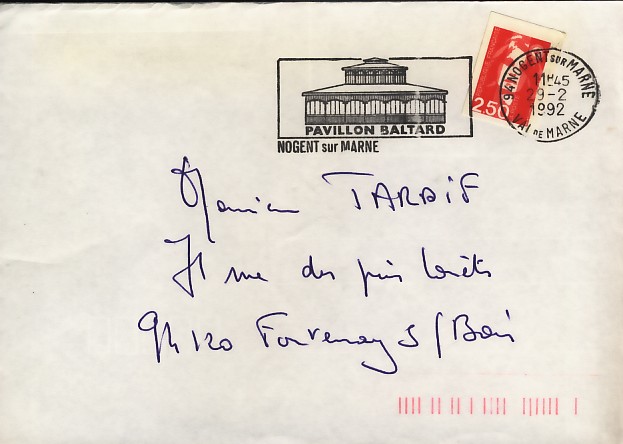 2,50
94 NOGENT SUR MARNE
11H45
29-2
1992
VAL DE MARNE
PAVILLON BALTARD
NOGENT sur MARNE
Monsieur TARDIF
71 rue des
94120 Fontenay S/Bois